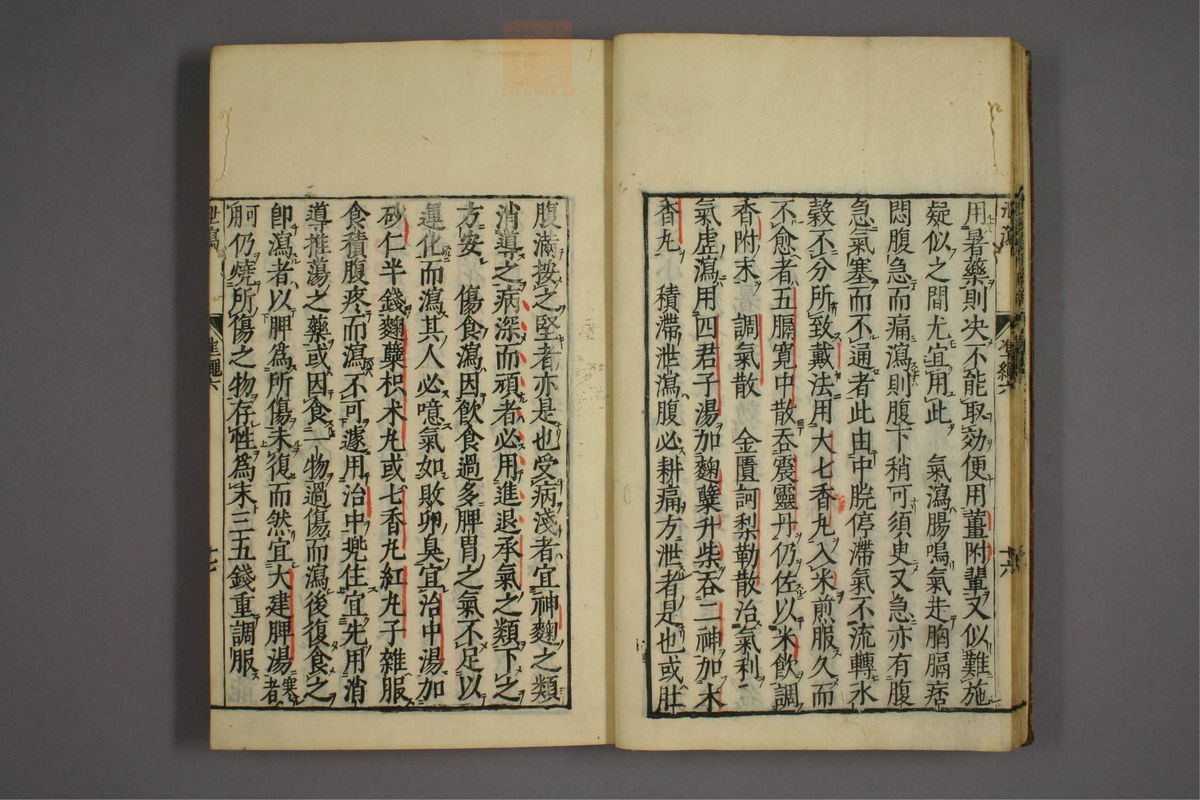 用暑藥則决不能取効便用薑附輩又似難施
疑似之間尤宜用此　氣瀉腸鳴氣走胸膈痞
悶腹急而痛瀉則腹下稍可須臾又急亦有腹
急氣塞而不通者此由中脘停滯氣不流轉水
穀不分所致戴法用大七香丸入米煎服久而
不愈者五膈寬中散吞震靈丹仍佐以米飮調
香附末　調氣散　金匱訶梨勒散治氣利
氣虛瀉用四君子湯加麴糵升柴吞二神加木
香丸　積滯泄瀉腹必耕痛方泄者是也或肚
腹滿按之堅者亦是也受病淺者宜神麴之類
消導之病深而頑者必用進退承氣之類下之
方安　傷食瀉因飮食過多脾胃之氣不足以
運化而瀉其人必噫氣如敗卵臭宜治中湯加
砂仁半錢麴糵枳术丸或七香丸紅丸子雜服
食積腹疼而瀉不可遽用治中兜住宜先用消
導推蕩之藥或因食一物過傷而瀉後復食之
卽瀉者以脾爲所傷未復而然宜大建脾湯寒者
仍燒所傷之物存性爲末三五錢重調服